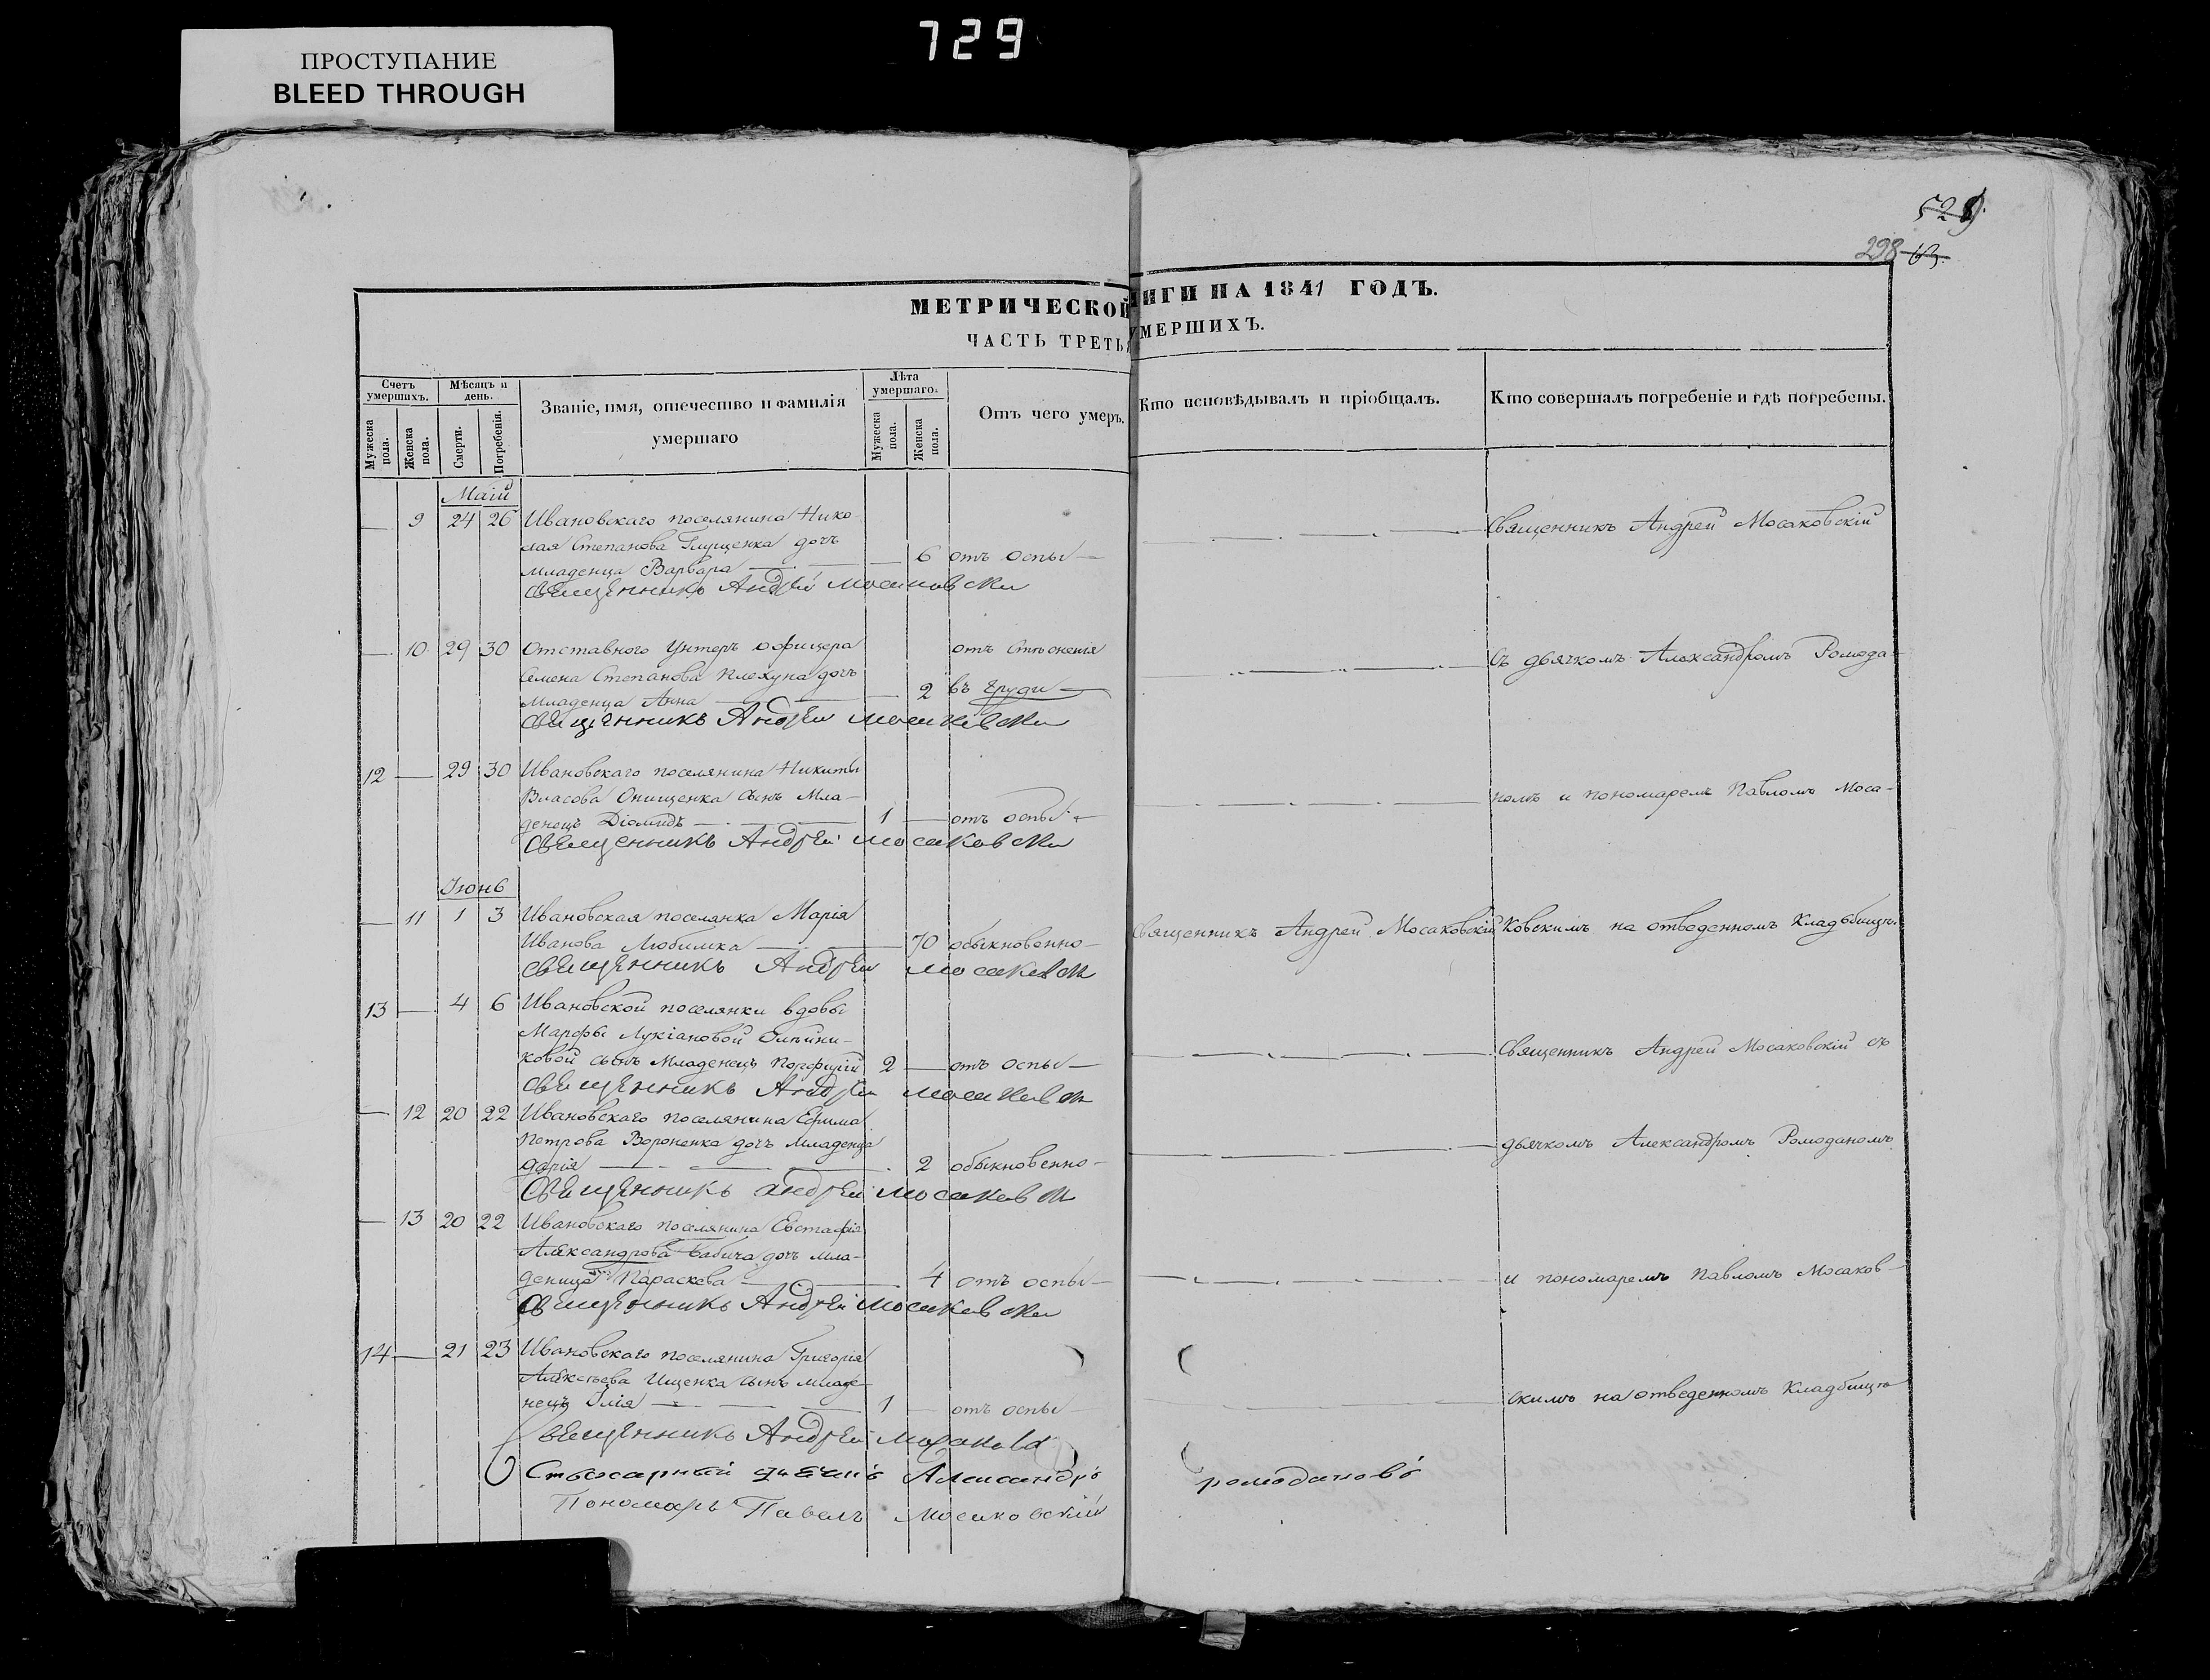 729
ПРОСТУПАНИЕ
BLEED THROUGH
529.
298
МЕТРИЧЕСКОЙ
ИГИ НА 1841 ГОДЪ.
ЧАСТЬ ТРЕТЬЯ
УМЕРШИХЪ.
Счетъ умершихъ.
Мужеска пола.
Женска пола.
Мѣсяцъ и день.
Смерти.
Погребенія.
Званіе, имя, отечество и фамилія
умершаго
Лѣта умершаго.
Мужеска пола.
Женска пола.
Отъ чего умеръ.
Кто исповѣдывалъ и пріобщалъ.
Кто совершалъ погребеніе и гдѣ погребены.
Маій
— 9 24 26 Ивановскаго поселянина Нико-
лая Степанова Глущенка дочъ
младенца Варвара — 6 отъ оспы —
Священникъ Андрей Мосаковскій
Священникъ Андрей Мосаковскій
— 10 29 30 Отставного Унтеръ офицера отъ
Семена Степанова Плехуна дочъ
младенца Анна — 2 въ груди —
Священникъ Андрей Мосаковскій
Съ дьячкомъ Александромъ Ромода-
12 — 29 30 Ивановскаго поселянина Никиты
Власова Онищенка сынъ Мла-
денецъ Діомидъ — 1 — отъ оспы —
Священникъ Андрей Мосаковскій
номъ и пономаремъ Павломъ Моса-
Іюнь
— 11 1 3 Ивановская поселянка Марія
Иванова Любимка — 70 обыкновенно —
Священникъ Андрей
Священникъ Андрей Мосаковскій
ковскимъ на отведенномъ Кладбищѣ.
13 — 4 6 Ивановской поселянки вдовы
Марфы Лукіановой Олѣйни-
ковой сынъ Младенецъ Порфирій 2 — отъ оспы —
Священникъ Андрей
Священникъ Андрей Мосаковскій съ
— 12 20 22 Ивановскаго поселянина Ефима
Петрова Вороненка дочъ Младенца
Дарія — 2 обыкновенно —
Священникъ Андрей
дьячкомъ Александромъ Ромоданомъ
— 13 20 22 Ивановскаго поселянина Евстафія
Александрова Бабича дочъ мла-
деница Параскева — 4 отъ оспы —
Священникъ Андрей Мосаковскій
и пономаремъ Павломъ Мосаков-
14 — 21 23 Ивановскаго поселянина Григорія
Алексѣева Ищенка сынъ младе-
нецъ Илія — 1 — отъ оспы
Священникъ Андрей
скимъ на отведенномъ Кладбищѣ
Александръ
ромодановъ
Пономарь Павелъ Мосаковскій